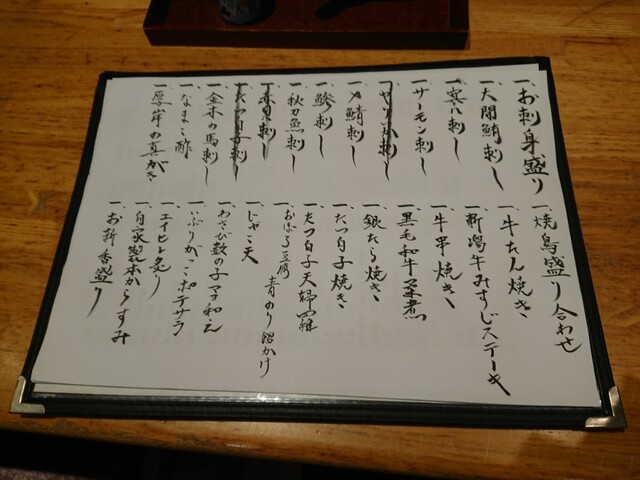 一、お刺身盛り
一、大間鮪刺し
一、寒八刺し
一、サーモン刺し
一、やりいか刺し
一、〆鯖刺し
一、鯵刺し
一、秋刀魚刺し
一、赤貝刺し
一、たつ白子刺し
一、金木の馬刺し
一、なまこ酢
一、厚岸の真がき
一、焼鳥盛り合わせ
一、牛たん焼き
一、新潟牛みすじステーキ
一、牛串焼き
一、黒毛和牛すき煮
一、銀だら焼き
一、たつ白子焼き
一、たつ白子天婦羅
一、おぼろ豆腐 青のり餡かけ
一、じゃこ天
一、わさび数の子マヨ和え
一、いぶりがっこポテサラ
一、エイヒレ炙り
一、自家製本からすみ
一、お新香盛り